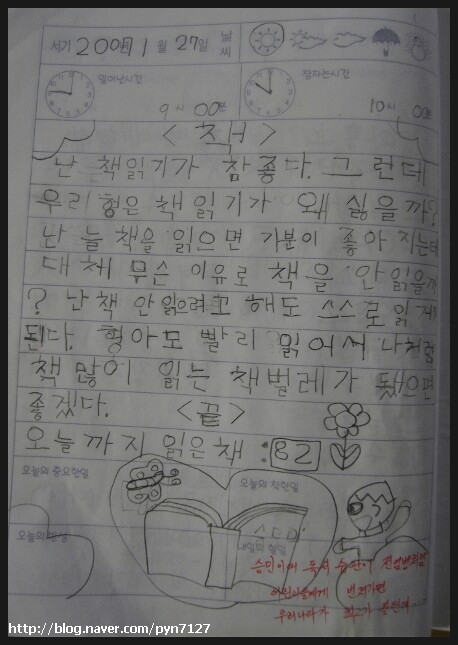 서기 200 1월 27일 날씨
일어난시간 잠자는시간
9시 00분 10시 00분
< 책 >
난 책읽기가 참 좋다. 그런데
우리 형은 책 읽기가 왜 싫을까?
난 늘 책을 읽으면 기분이 좋아 지는데
대체 무슨 이유로 책을 안읽을까
? 난 책 안 읽으려고 해도 스스로 읽게
된다. 형아도 빨리 읽어서 나처럼
책 많이 읽는 책벌레가 됐으면
좋겠다. <끝>
오늘까지 읽은 책 : 82
오늘의 중요한일 오늘의 착한일
오늘의 반성 내일의 할일
승민이의 독서 습관이
어린이들에게 번져가면
우리나라가
http://blog.naver.com/pyn7127